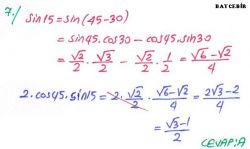 BAYCEBİR
7./ sin15 = sin(45-30)
= sin45.cos30 - cos45.sin30
= √2/2 . √3/2 - √2/2 . 1/2 = √6-√2/4
2.cos45.sin15 = 2.√2/2 . √6-√2/4 = 2√3-2/4
= √3-1/2
CEVAP:A